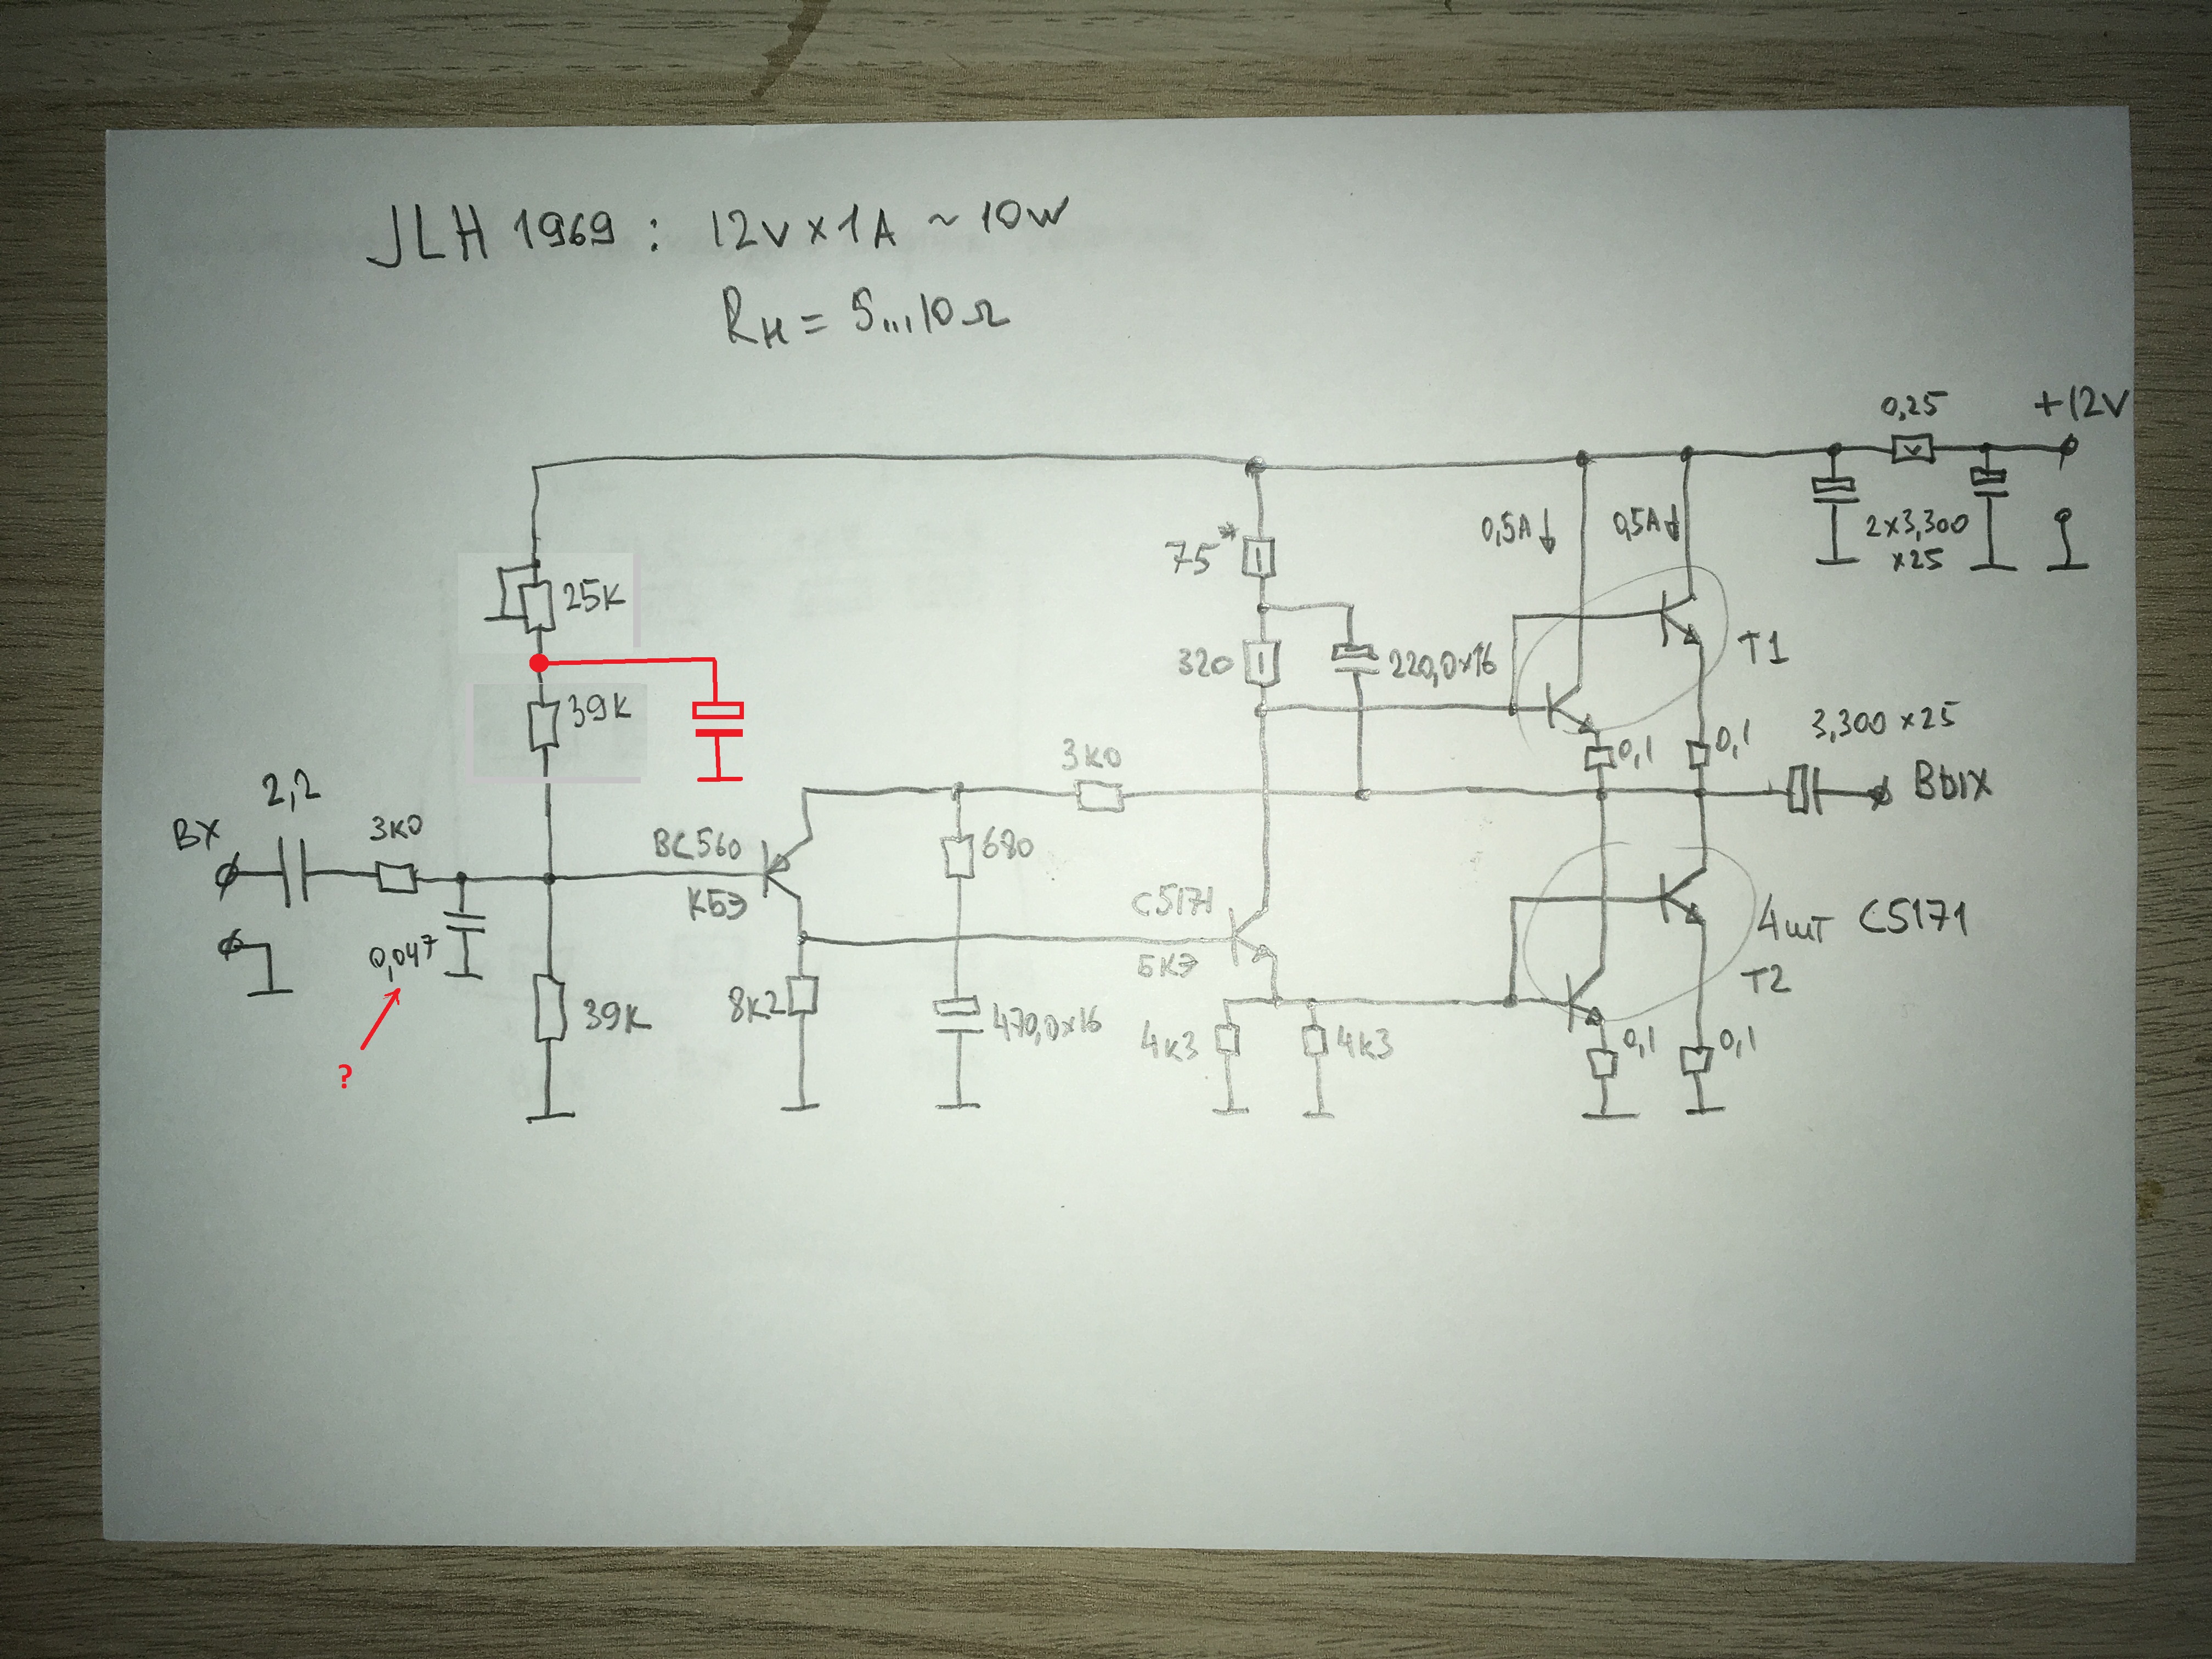 JLH 1969 : 12V x 1A ~ 10W
Rн = 5...10Ω
0,25
+12V
75*
0,5A↓
0,5A↓
2x3,300
x25
25K
T1
320
220,0x16
39K
0,1
0,1
3,300 x 25
3K0
Вых
2,2
Вх
3K0
BC560
680
КБЭ
C5171
4шт C5171
0,047
БКЭ
T2
39K
8K2
470,0x16
4K3
4K3
0,1
0,1
?